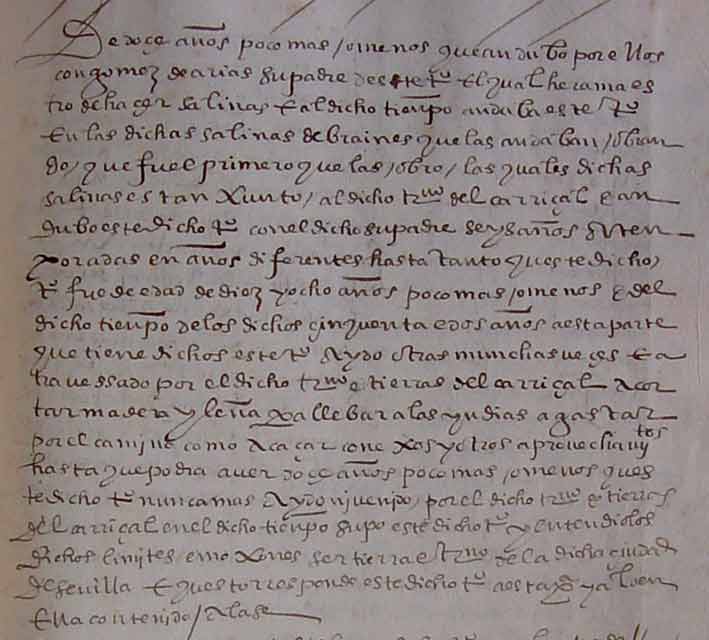 De doçe años poco mas / o menos que andubo por ellos
con gomez de arias su padre deste tº El qual hera maes
tro de haçer salinas E al dicho tienpo andaba este tº
En las dichas salinas de braines que las andaban / obran
do / que fue el primero que las / obro / las quales dichas
salinas estan Xunto / al dicho trno del carriçal E an
dubo este dicho tº con el dicho su padre seys años En ten
poradas en años diferentes hasta tanto queste dicho /
tº fue de edad de diez y ocho años poco mas / o menos E del
dicho tienpo de los dichos çinquenta e dos años a esta parte
que tiene dichos este tº A ydo otras munchas veçes E a
travessado por el dicho trno e tierras del carriçal A cor
tar madera y leña para llebar a las yndias a gastar
por el camino como A caçar conexos y otros aprovechamytos
hasta que podra aver doçe años poco mas / o menos ques
te dicho tº nunca mas A ydo ni venido / por el dicho trno e tierras
del carriçal en el dicho tienpo supo este dicho tº y entendio los
dichos limites E moxones ser tierra e trno de la dicha çiudad
de sevilla E questo rresponde este dicho tº a esta pregª y a lo en
Ella contenido / A la se